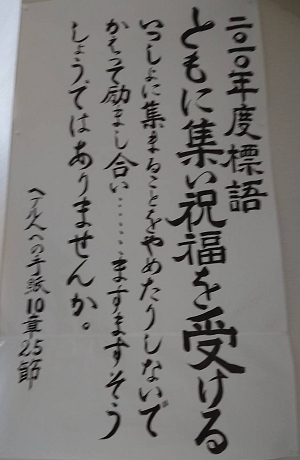 二〇一〇年度標語
ともに集い祝福を受ける
いっしょに集まることをやめたりしないで
かえって励まし合い……ますますそう
しようではありませんか。
ヘブル人への手紙10章25節